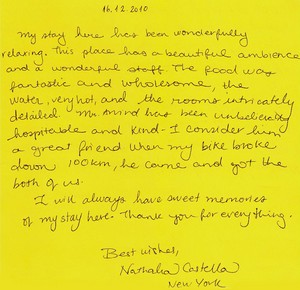 16.12.2010
My stay here has been wonderfully
relaxing. This place has a beautiful ambience
and a wonderful staff. The food was
fantastic and wholesome, the
water, very hot, and the rooms intricately
detailed. Mr. has been unbelievably
hospitable and kind - I consider him
a great friend. When my bike broke
down 100km, he came and got the
both of us.
I will always have sweet memories
of my stay here. Thank you for everything.
Best wishes,
Nathalia Castella
New York